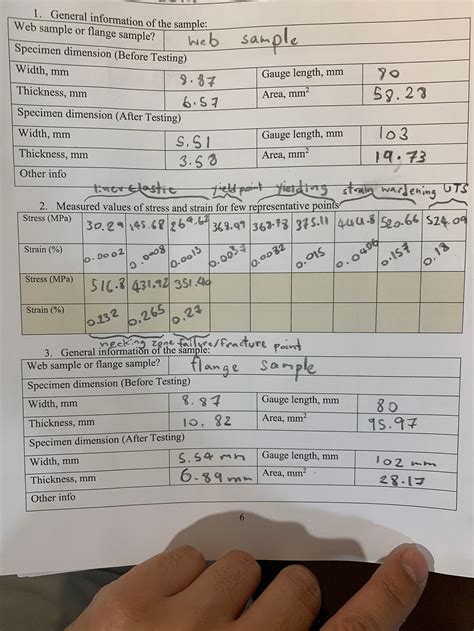 1. General information of the sample:
Web sample or flange sample? web sample
Specimen dimension (Before Testing)
Width, mm 8.87 Gauge length, mm 80
Thickness, mm 6.57 Area, mm² 58.28
Specimen dimension (After Testing)
Width, mm 5.51 Gauge length, mm 103
Thickness, mm 3.58 Area, mm² 19.73
Other info
liner elastic yield point yielding strain wardening UTS
2. Measured values of stress and strain for few representative points
Stress (MPa) 30.29 145.68 269.62 368.49 368.78 375.11 444.8 520.66 524.09
Strain (%) 0.0002 0.0008 0.0013 0.0037 0.0082 0.015 0.0496 0.157 0.18
Stress (MPa) 516.8 431.92 351.40
Strain (%) 0.232 0.265 0.27
necking zone failure/fracture point
3. General information of the sample:
Web sample or flange sample? flange sample
Specimen dimension (Before Testing)
Width, mm 8.87 Gauge length, mm 80
Thickness, mm 10.82 Area, mm² 95.97
Specimen dimension (After Testing)
Width, mm 5.54 mm Gauge length, mm 102 mm
Thickness, mm 6.89 mm Area, mm² 28.17
Other info
6